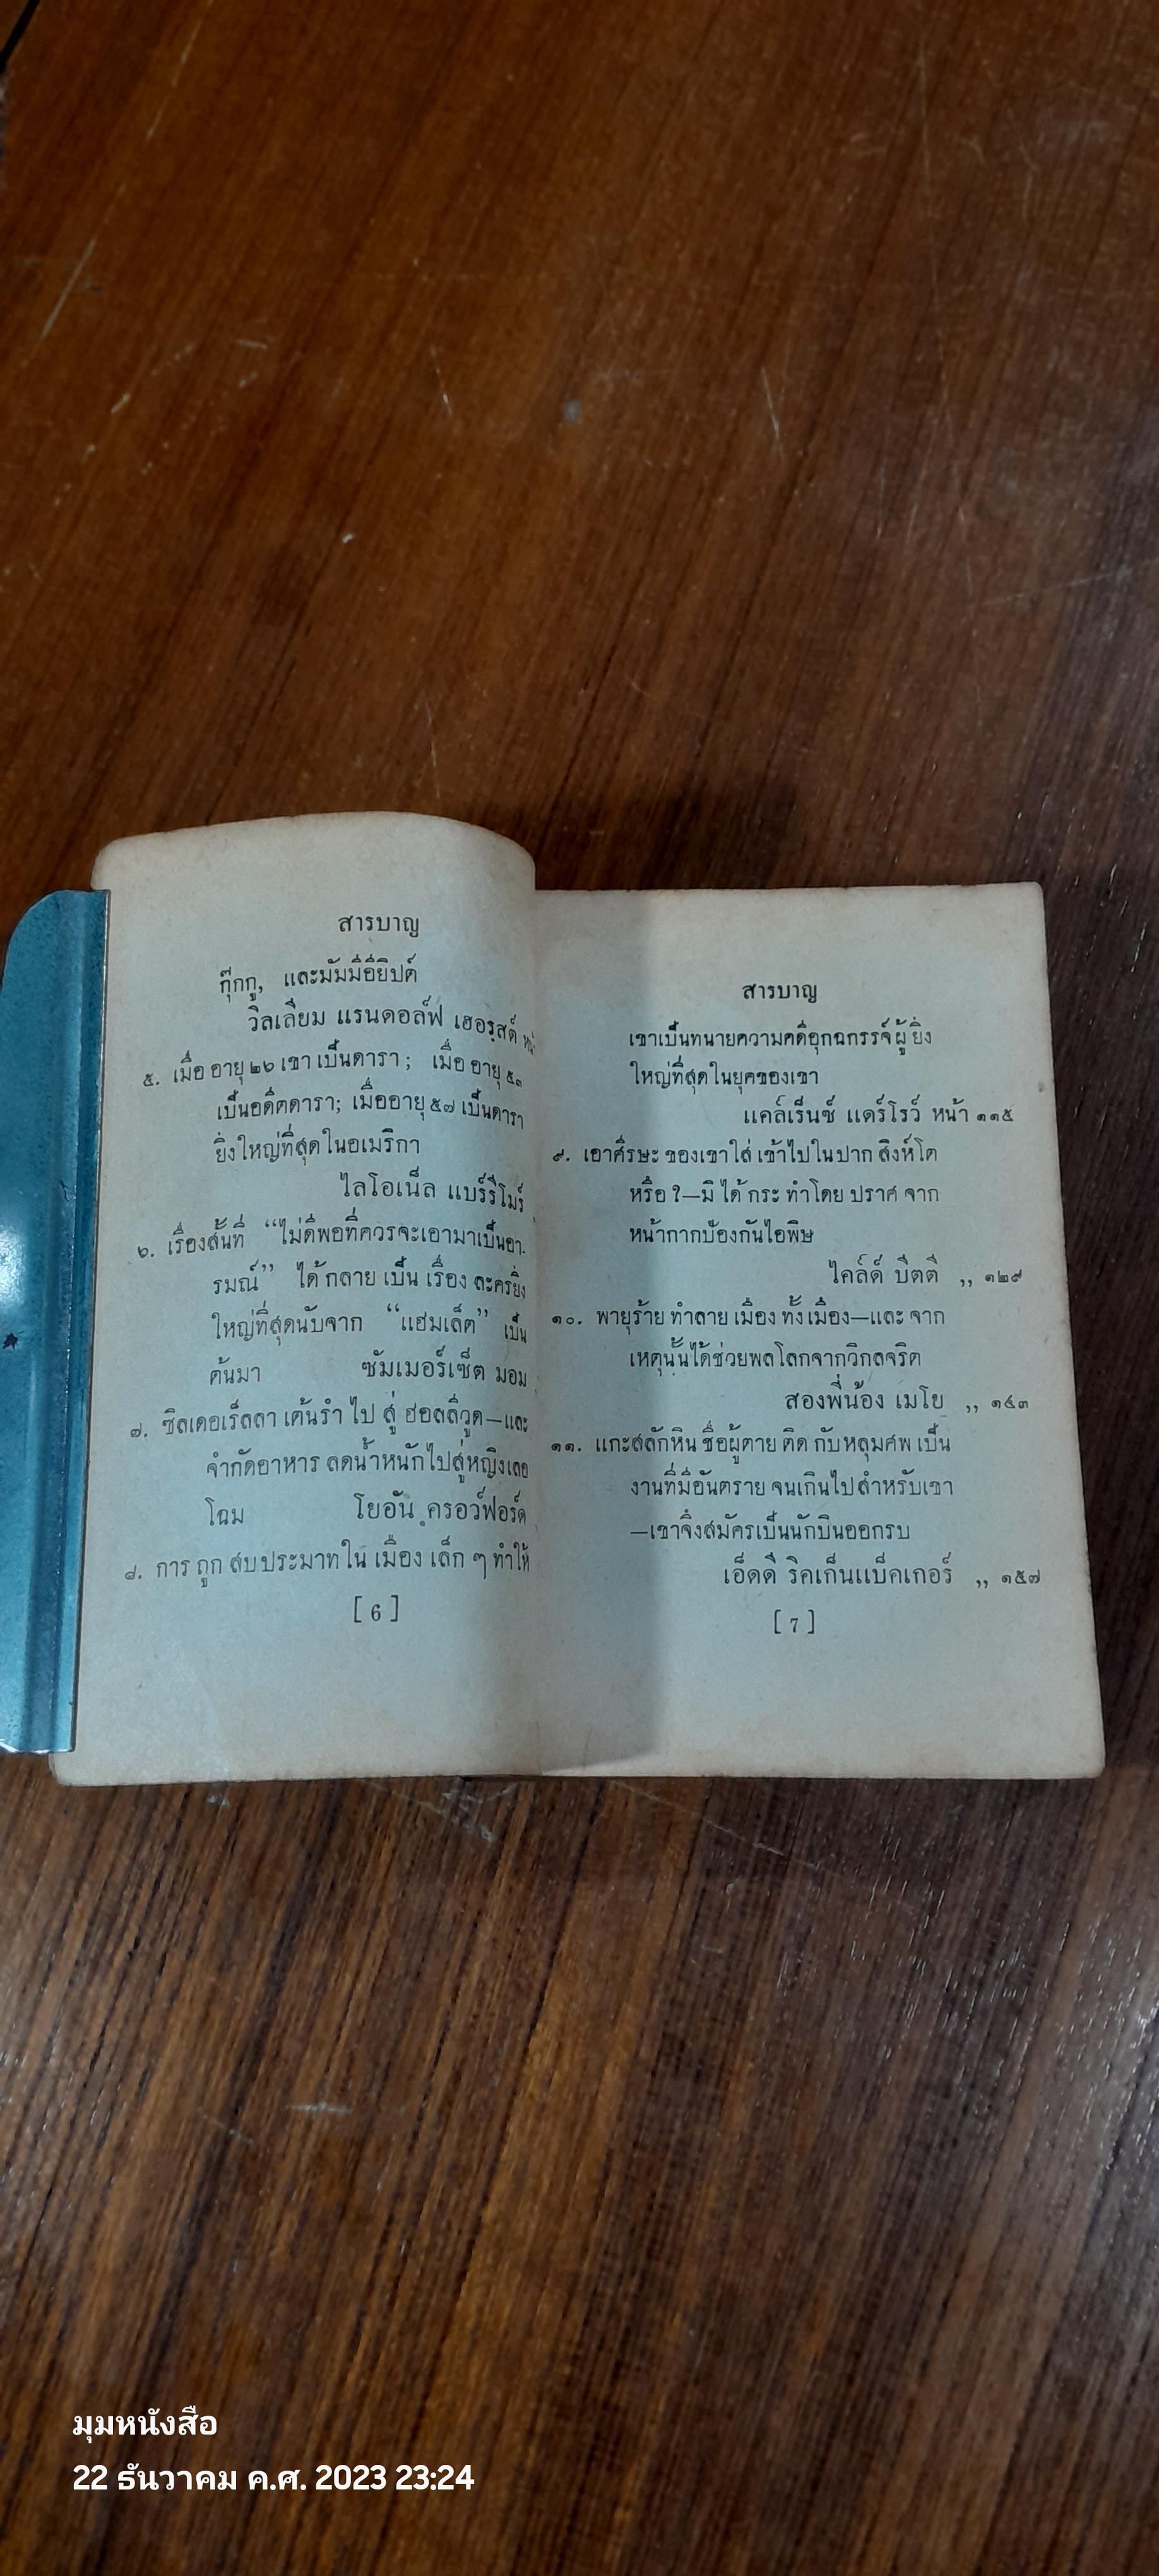 สารบาญ
กุ๊กกู, และมัมมี่อียิปต์
วิลเลียม แรนดอล์ฟ เฮอรสต์
๕. เมื่อ อายุ ๒๖ เขา เป็นดารา ; เมื่อ อายุ ๕๓
เป็นอดีตดารา; เมื่ออายุ ๕๗ เป็นดารา
ยิ่งใหญ่ที่สุดในอเมริกา
ไลโอเน็ล แบร์รีโมร์
๖. เรื่องสั้นที่ “ไม่ดีพอที่ควรจะเอามาเป็นอา-
รมณ์” ได้ กลาย เป็น เรื่อง ละครยิ่ง
ใหญ่ที่สุดนับจาก “แฮมเล็ต” เป็น
ต้นมา ซัมเมอร์เซ็ต มอม
๗. ซิลเดอเร็ลลา เต้นรำ ไป สู่ ฮอลลิวูด—และ
จำกัดอาหาร ลดน้ำหนักไปสู่หญิงเลอ
โฉม โยอัน ครอว์ฟอร์ด
๘. การ ถูก สบประมาทใน เมือง เล็ก ๆ ทำให้
[ 6 ]
สารบาญ
เขาเป็นทนายความคดีอุกฉกรรจ์ ผู้ ยิ่ง
ใหญ่ที่สุดในยุคของเขา
แคล์เร็นซ์ แดร์โรว์ หน้า ๑๑๕
๙. เอาศีรษะ ของเขาใส่ เข้าไปในปาก สิงห์โต
หรือ ?—มิ ได้ กระ ทำโดย ปราศ จาก
หน้ากากป้องกันไอพิษ
ไคล์ด์ บีตตี ,, ๑๒๙
๑๐. พายุร้าย ทำลาย เมือง ทั้ง เมือง—และ จาก
เหตุนั้นได้ช่วยพลโลกจากวิกลจริต
สองพี่น้อง เมโย ,, ๑๔๓
๑๑. แกะสลักหิน ชื่อผู้ตาย ติด กับหลุมศพ เป็น
งานที่มีอันตราย จนเกินไปสำหรับเขา
—เขาจึงสมัครเป็นนักบินออกรบ
เอ็ดดี ริคเก็นแบ็คเกอร์ ,, ๑๕๗
[ 7 ]
มุมหนังสือ
22 ธันวาคม ค.ศ. 2023 23:24